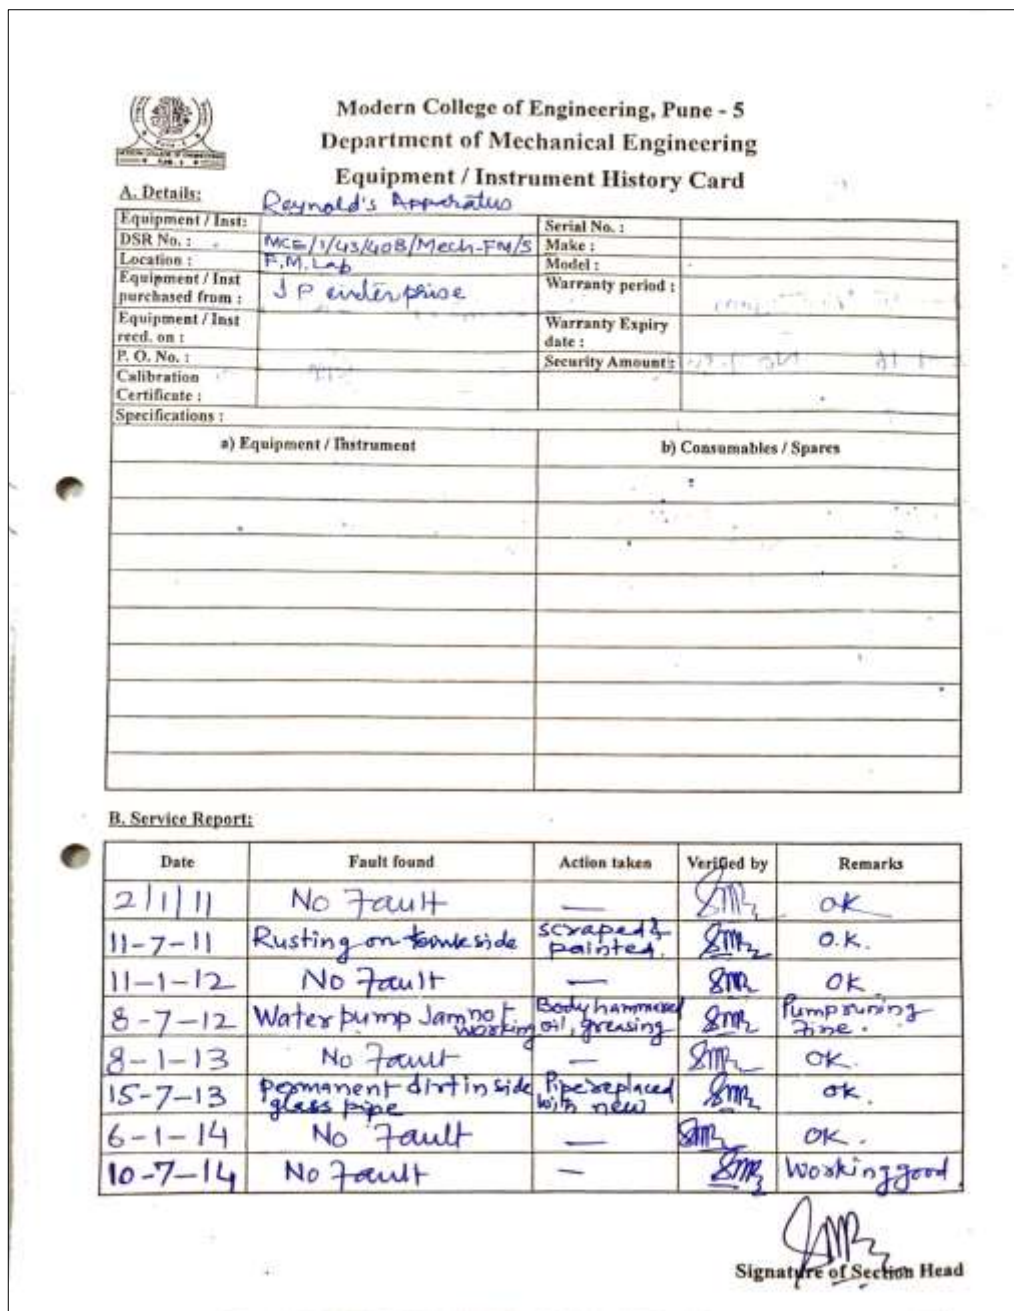 Modern College of Engineering, Pune - 5
Department of Mechanical Engineering
Equipment / Instrument History Card
A. Details:
Reynold's Apparatus
Equipment / Inst:
Serial No. :
DSR No. :
MCE/1/43/408/Mech-FM/5
Make :
Location :
F.M. Lab
Model :
Equipment / Inst
purchased from :
J P enterprise
Warranty period :
Equipment / Inst
recd. on :
Warranty Expiry
date :
P. O. No. :
Security Amount:
Calibration
Certificate :
Specifications :
a) Equipment / Instrument
b) Consumables / Spares
B. Service Report:
Date Fault found Action taken Verified by Remarks
2/1/11 No Fault — OK
11-7-11 Rusting on side scraped &
painted. O.K.
11-1-12 No Fault — OK
8-7-12 Water pump Jam not
working Body hammered
oil, greasing Pump runing
fine.
8-1-13 No Fault — OK.
15-7-13 permanent dirt in side
glass pipe Pipe replaced
with new OK.
6-1-14 No Fault — OK.
10-7-14 No Fault — Working good.
Signature of Section Head